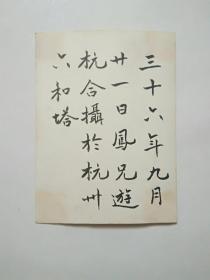 三十六年九月
廿一日鳳兄遊
杭合攝於杭州
六和塔